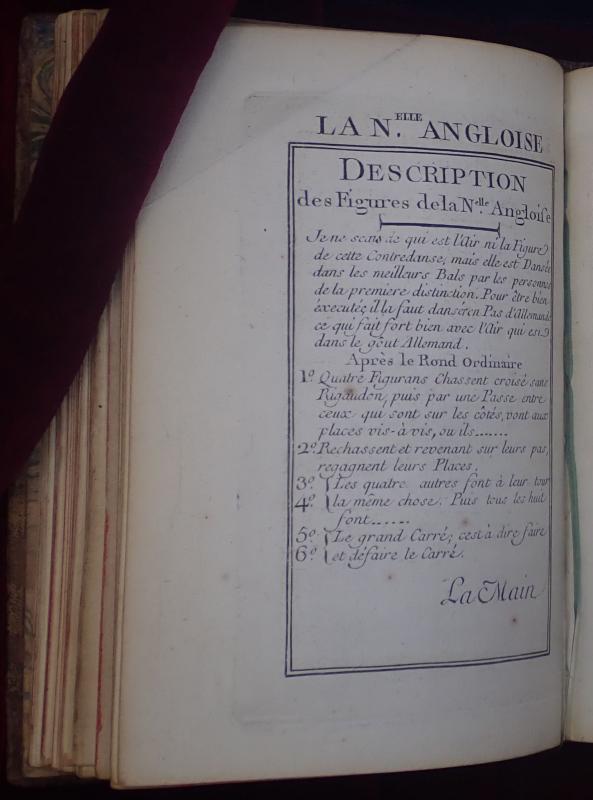 LA N.ELLE ANGLOISE
DESCRIPTION
des Figures de la N.elle Angloise
Je ne scais de qui est l'Air ni la Figure
de cette Contredanse, mais elle est Dansée
dans les meilleurs Bals par les personnes
de la premiere distinction. Pour être bien
éxecutée, il la faut danser en Pas d'Allemande
ce qui fait fort bien avec l'Air qui est
dans le goût Allemand.
Après le Rond Ordinaire
1.º Quatre Figurans Chassent croisé sans
Rigaudon, puis par une Passe entre
ceux qui sont sur les côtés, vont aux
places vis-à-vis, ou ils......
2.º Rechassent et revenant sur leurs pas,
regagnent leurs Places.
3.º { Les quatre autres font à leur tour
4.º la même chose. Puis tous les huit
font......
5.º { Le grand Carré; c'est à dire faire
6.º et défaire le Carré.
La Main